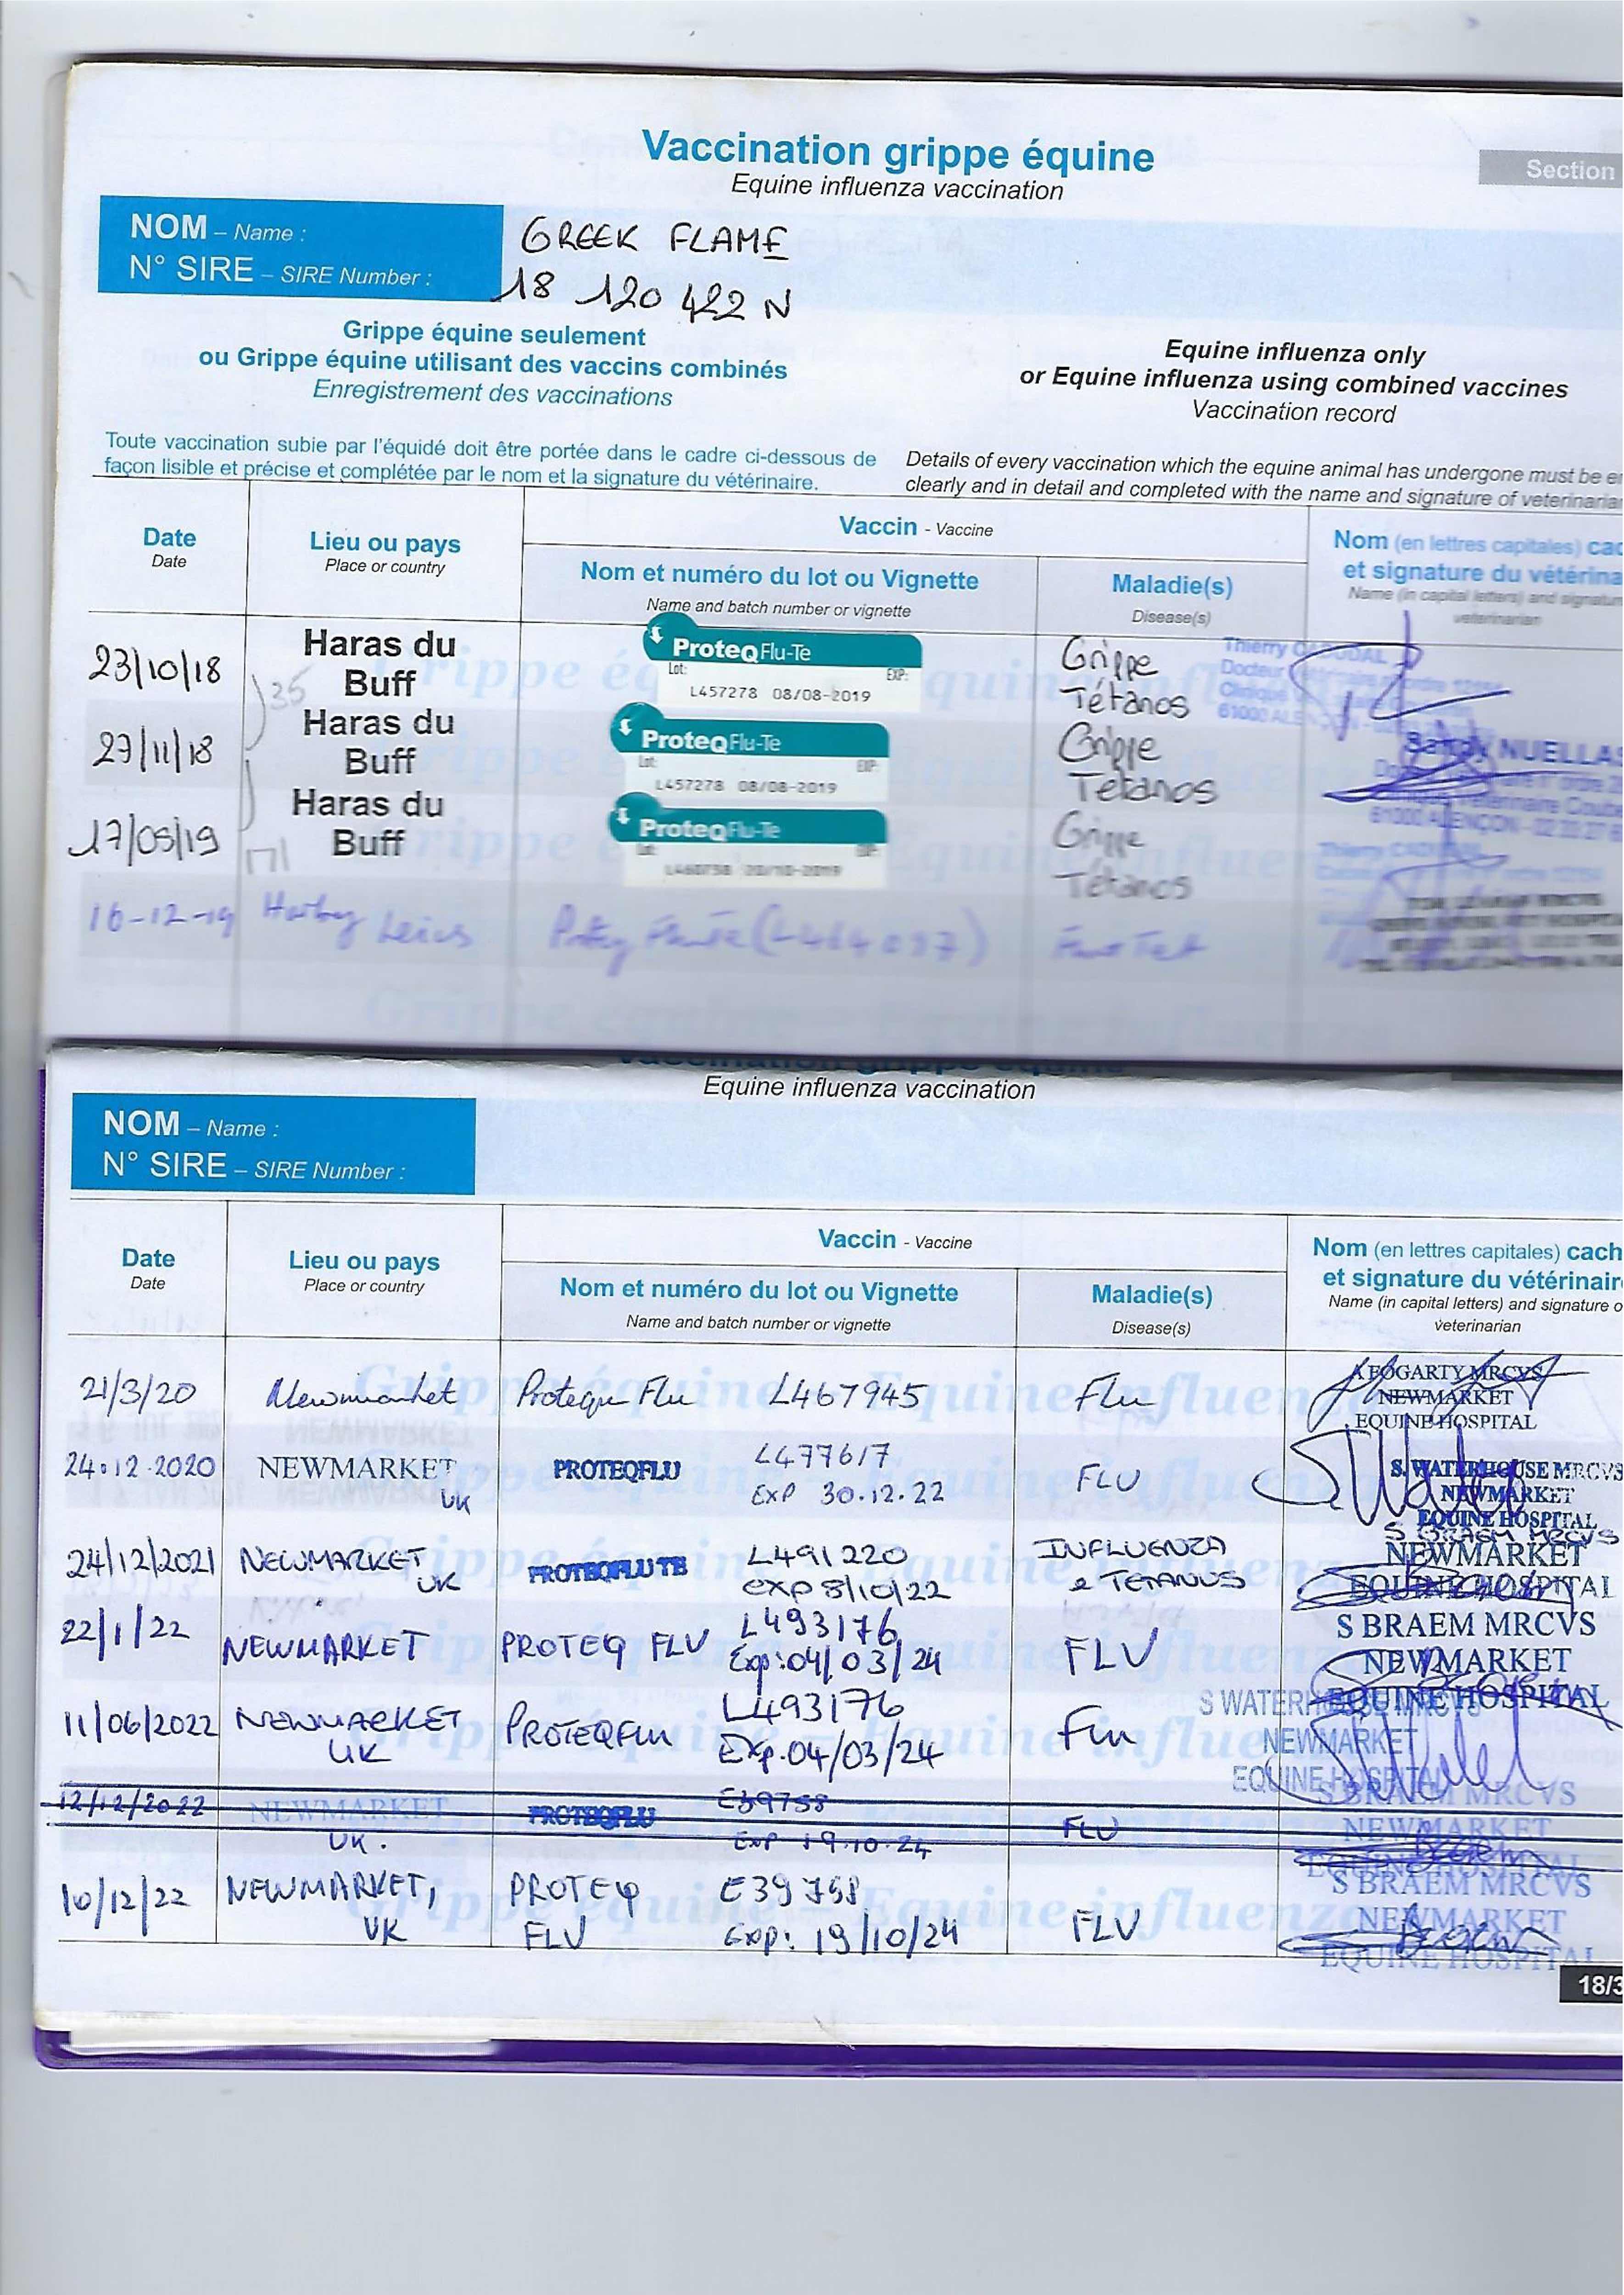 Vaccination grippe équine
Equine influenza vaccination
Section
NOM – Name :
GREEK FLAME
N° SIRE – SIRE Number :
18 120 422 N
Grippe équine seulement
ou Grippe équine utilisant des vaccins combinés
Enregistrement des vaccinations
Equine influenza only
or Equine influenza using combined vaccines
Vaccination record
Toute vaccination subie par l'équidé doit être portée dans le cadre ci-dessous de
façon lisible et précise et complétée par le nom et la signature du vétérinaire.
Details of every vaccination which the equine animal has undergone must be
clearly and in detail and completed with the name and signature of
Date
Date
Lieu ou pays
Place or country
Vaccin - Vaccine
Nom et numéro du lot ou Vignette
Name and batch number or vignette
Maladie(s)
Disease(s)
Nom (en lettres capitales)
et signature du
Name (in capital letters) and
veterinarian
23/10/18
Haras du
Buff
ProteqFlu-Te
Lot: EXP:
L457278 08/08-2019
Grippe
Tétanos
Thierry
Docteur
61000
35
27/11/18
Haras du
Buff
ProteqFlu-Te
Lot: EXP:
L457278 08/08-2019
Grippe
Tétanos
NUELLAS
61000 ALENÇON
17/05/19
Haras du
Buff
ProteqFlu-Te
Grippe
Tétanos
171
16-12-19
Equine influenza vaccination
NOM – Name :
N° SIRE – SIRE Number :
Date
Date
Lieu ou pays
Place or country
Vaccin - Vaccine
Nom et numéro du lot ou Vignette
Name and batch number or vignette
Maladie(s)
Disease(s)
Nom (en lettres capitales) cach
et signature du vétérinair
Name (in capital letters) and signature o
veterinarian
21/3/20 Newmarket Proteque Flu L467945 Flu
FOGARTY MRCVS
NEWMARKET
EQUINE HOSPITAL
24.12.2020 NEWMARKET UK PROTEQFLU L477617 FLU
EXP 30.12.22
S. WATERHOUSE MRCVS
NEWMARKET
EQUINE HOSPITAL
24/12/2021 NEWMARKET UK PROTEQFLU TE L491220
exp 8/10/22
INFLUENZA
& TETANUS
S BRAEM MRCVS
NEWMARKET
EQUINE HOSPITAL
22/1/22 NEWMARKET PROTEQ FLU L493176 FLU
Exp: 04/03/24
S BRAEM MRCVS
NEWMARKET
EQUINE HOSPITAL
11/06/2022 NEWMARKET UK PROTEQFLU L493176 Flu
Exp. 04/03/24
S WATERHOUSE MRCVS
NEWMARKET
EQUINE HOSPITAL
12/12/2022 NEWMARKET UK. PROTEQFLU E39758 FLU
EXP 19.10.24
S BRAEM MRCVS
NEWMARKET
EQUINE HOSPITAL
10/12/22 NEWMARKET, UK PROTEQ FLU E39758 FLU
Exp: 19/10/24
S BRAEM MRCVS
NEWMARKET
EQUINE HOSPITAL
18/3